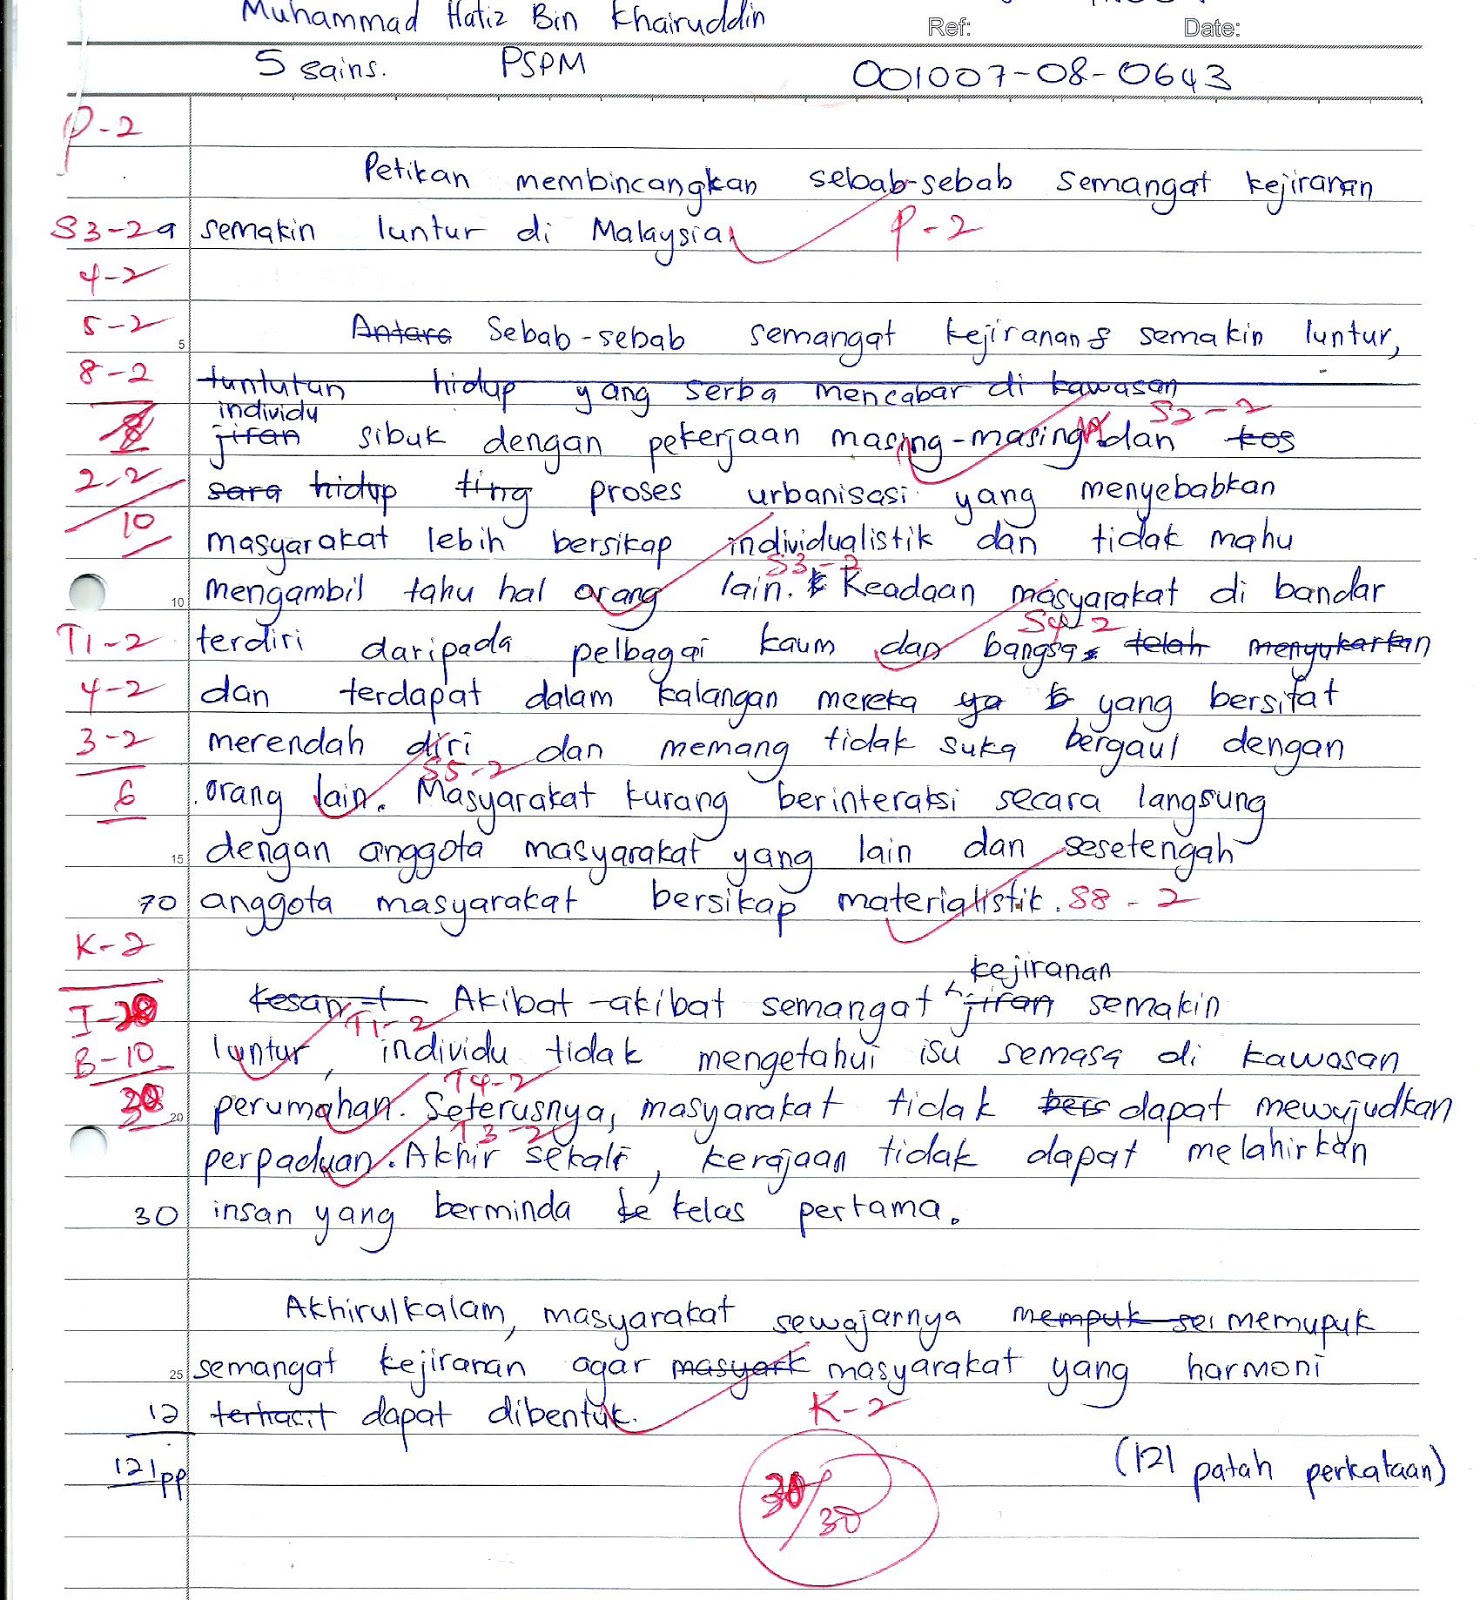 Muhammad Hafiz Bin Khairuddin
Ref: Date:
5 sains. PSPM 001007-08-0643
P-2
Petikan membincangkan sebab-sebab semangat kejiranan
S3-2a semakin luntur di Malaysia. P-2
4-2
5-2
5 Antara Sebab-sebab semangat kejiranan semakin luntur,
8-2 tuntutan hidup yang serba mencabar di kawasan
individu S2-2
jiran sibuk dengan pekerjaan masing-masing dan kos
2-2 sara hidup ting proses urbanisasi yang menyebabkan
10 masyarakat lebih bersikap individualistik dan tidak mahu
S3-2
10 mengambil tahu hal orang lain. Keadaan masyarakat di bandar
S4-2
T1-2 terdiri daripada pelbagai kaum dan bangsa telah menyukarkan
4-2 dan terdapat dalam kalangan mereka ya b yang bersifat
3-2 merendah diri dan memang tidak suka bergaul dengan
S5-2
6 orang lain. Masyarakat kurang berinteraksi secara langsung
15 dengan anggota masyarakat yang lain dan sesetengah
70 anggota masyarakat bersikap materialistik. S8-2
K-2
kejiranan
I-20 Kesan-t Akibat-akibat semangat jiran semakin
T1-2
B-10 luntur, individu tidak mengetahui isu semasa di kawasan
T4-2
30 20 perumahan. Seterusnya, masyarakat tidak bers dapat mewujudkan
T3-2
perpaduan. Akhir sekali, kerajaan tidak dapat melahirkan
30 insan yang berminda ke kelas pertama.
Akhirulkalam, masyarakat sewajarnya mempuk sei memupuk
25 semangat kejiranan agar masyark masyarakat yang harmoni
12 terhasit dapat dibentuk. K-2
121pp (121 patah perkataan)
30/30